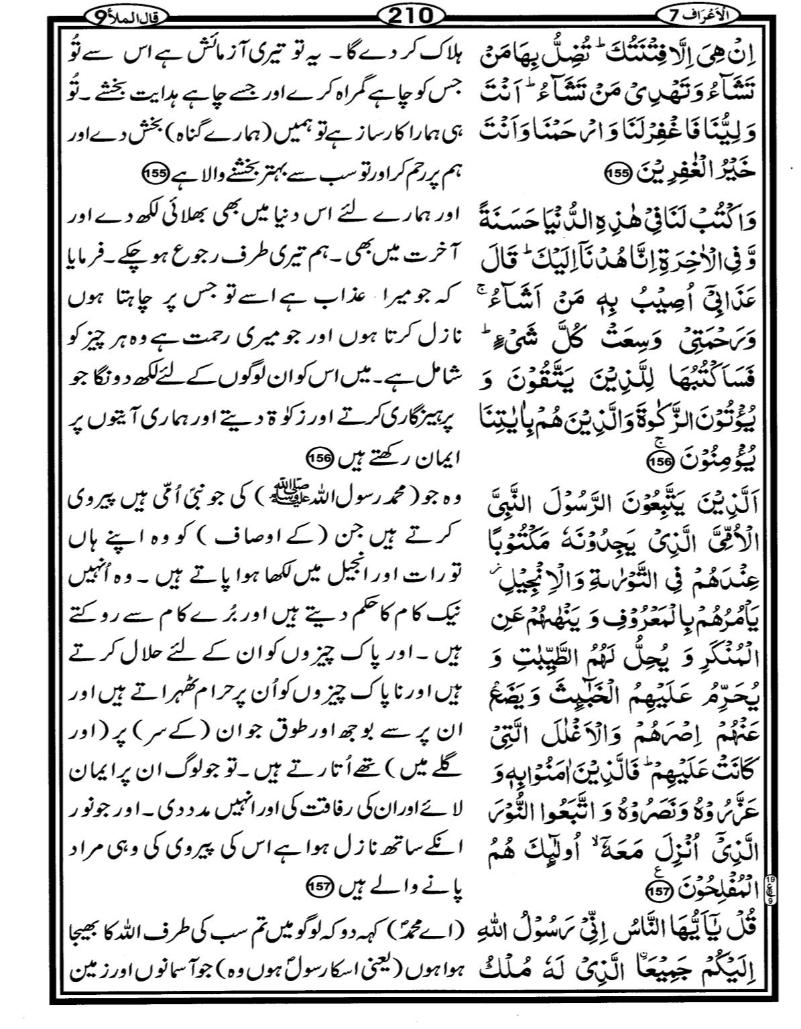 الاعراف 7
210
قال الملأ 9
اِنْ هِىَ اِلَّا فِتْنَتُكَ ؕ تُضِلُّ بِهَا مَنْ
تَشَآءُ وَتَهْدِىْ مَنْ تَشَآءُ ؕ اَنْتَ
وَلِيُّنَا فَاغْفِرْ لَنَا وَارْحَمْنَا وَاَنْتَ
خَيْرُ الْغٰفِرِيْنَ 155
وَاكْتُبْ لَنَا فِىْ هٰذِهِ الدُّنْيَا حَسَنَةً
وَّفِى الْاٰخِرَةِ اِنَّا هُدْنَاۤ اِلَيْكَ ؕ قَالَ
عَذَابِىْۤ اُصِيْبُ بِهٖ مَنْ اَشَآءُ ۚ
وَرَحْمَتِىْ وَسِعَتْ كُلَّ شَىْءٍ ؕ
فَسَاَكْتُبُهَا لِلَّذِيْنَ يَتَّقُوْنَ وَ
يُؤْتُوْنَ الزَّكٰوةَ وَالَّذِيْنَ هُمْ بِاٰيٰتِنَا
يُؤْمِنُوْنَ ۚ 156
اَلَّذِيْنَ يَتَّبِعُوْنَ الرَّسُوْلَ النَّبِىَّ
الْاُمِّىَّ الَّذِىْ يَجِدُوْنَهٗ مَكْتُوْبًا
عِنْدَهُمْ فِى التَّوْرٰىةِ وَالْاِنْجِيْلِ ؗ
يَاْمُرُهُمْ بِالْمَعْرُوْفِ وَيَنْهٰىهُمْ عَنِ
الْمُنْكَرِ وَ يُحِلُّ لَهُمُ الطَّيِّبٰتِ وَ
يُحَرِّمُ عَلَيْهِمُ الْخَبٰٓئِثَ وَيَضَعُ
عَنْهُمْ اِصْرَهُمْ وَالْاَغْلٰلَ الَّتِىْ
كَانَتْ عَلَيْهِمْ ؕ فَالَّذِيْنَ اٰمَنُوْا بِهٖ وَ
عَزَّرُوْهُ وَنَصَرُوْهُ وَ اتَّبَعُوا النُّوْرَ
الَّذِىْۤ اُنْزِلَ مَعَهٗۤ ۙ اُولٰٓئِكَ هُمُ
الْمُفْلِحُوْنَ 157
قُلْ يٰۤاَيُّهَا النَّاسُ اِنِّىْ رَسُوْلُ اللّٰهِ
اِلَيْكُمْ جَمِيْعَاۨ الَّذِىْ لَهٗ مُلْكُ
ہلاک کر دے گا ۔ یہ تو تیری آزمائش ہے اس سے تُو
جس کو چاہے گمراہ کرے اور جسے چاہے ہدایت بخشے ۔ تُو
ہی ہمارا کارساز ہے تو ہمیں (ہمارے گناہ) بخش دے اور
ہم پر رحم کر اور تو سب سے بہتر بخشنے والا ہے 155
اور ہمارے لئے اس دنیا میں بھی بھلائی لکھ دے اور
آخرت میں بھی ۔ ہم تیری طرف رجوع ہو چکے ۔ فرمایا
کہ جو میرا عذاب ہے اسے تو جس پر چاہتا ہوں
نازل کرتا ہوں اور جو میری رحمت ہے وہ ہر چیز کو
شامل ہے ۔ میں اس کو ان لوگوں کے لئے لکھ دونگا جو
پرہیزگاری کرتے اور زکوۃ دیتے اور ہماری آیتوں پر
ایمان رکھتے ہیں 156
وہ جو (محمد رسول اللہ ﷺ) کی جو نبیّ اُمّی ہیں پیروی
کرتے ہیں جن (کے اوصاف ) کو وہ اپنے ہاں
تورات اور انجیل میں لکھا ہوا پاتے ہیں ۔ وہ اُنہیں
نیک کام کا حکم دیتے ہیں اور بُرے کام سے روکتے
ہیں ۔ اور پاک چیزوں کو ان کے لئے حلال کرتے
ہیں اور ناپاک چیزوں کو اُن پر حرام ٹھہراتے ہیں اور
ان پر سے بوجھ اور طوق جو ان (کے سر) پر (اور
گلے میں ) تھے اُتارتے ہیں ۔ تو جو لوگ ان پر ایمان
لائے اور ان کی رفاقت کی اور انہیں مدد دی ۔ اور جو نور
انکے ساتھ نازل ہوا ہے اس کی پیروی کی وہی مراد
پانے والے ہیں 157
(اے محمدؐ) کہہ دو کہ لوگو میں تم سب کی طرف اللہ کا بھیجا
ہوا ہوں (یعنی اسکا رسولؐ ہوں وہ) جو آسمانوں اور زمین